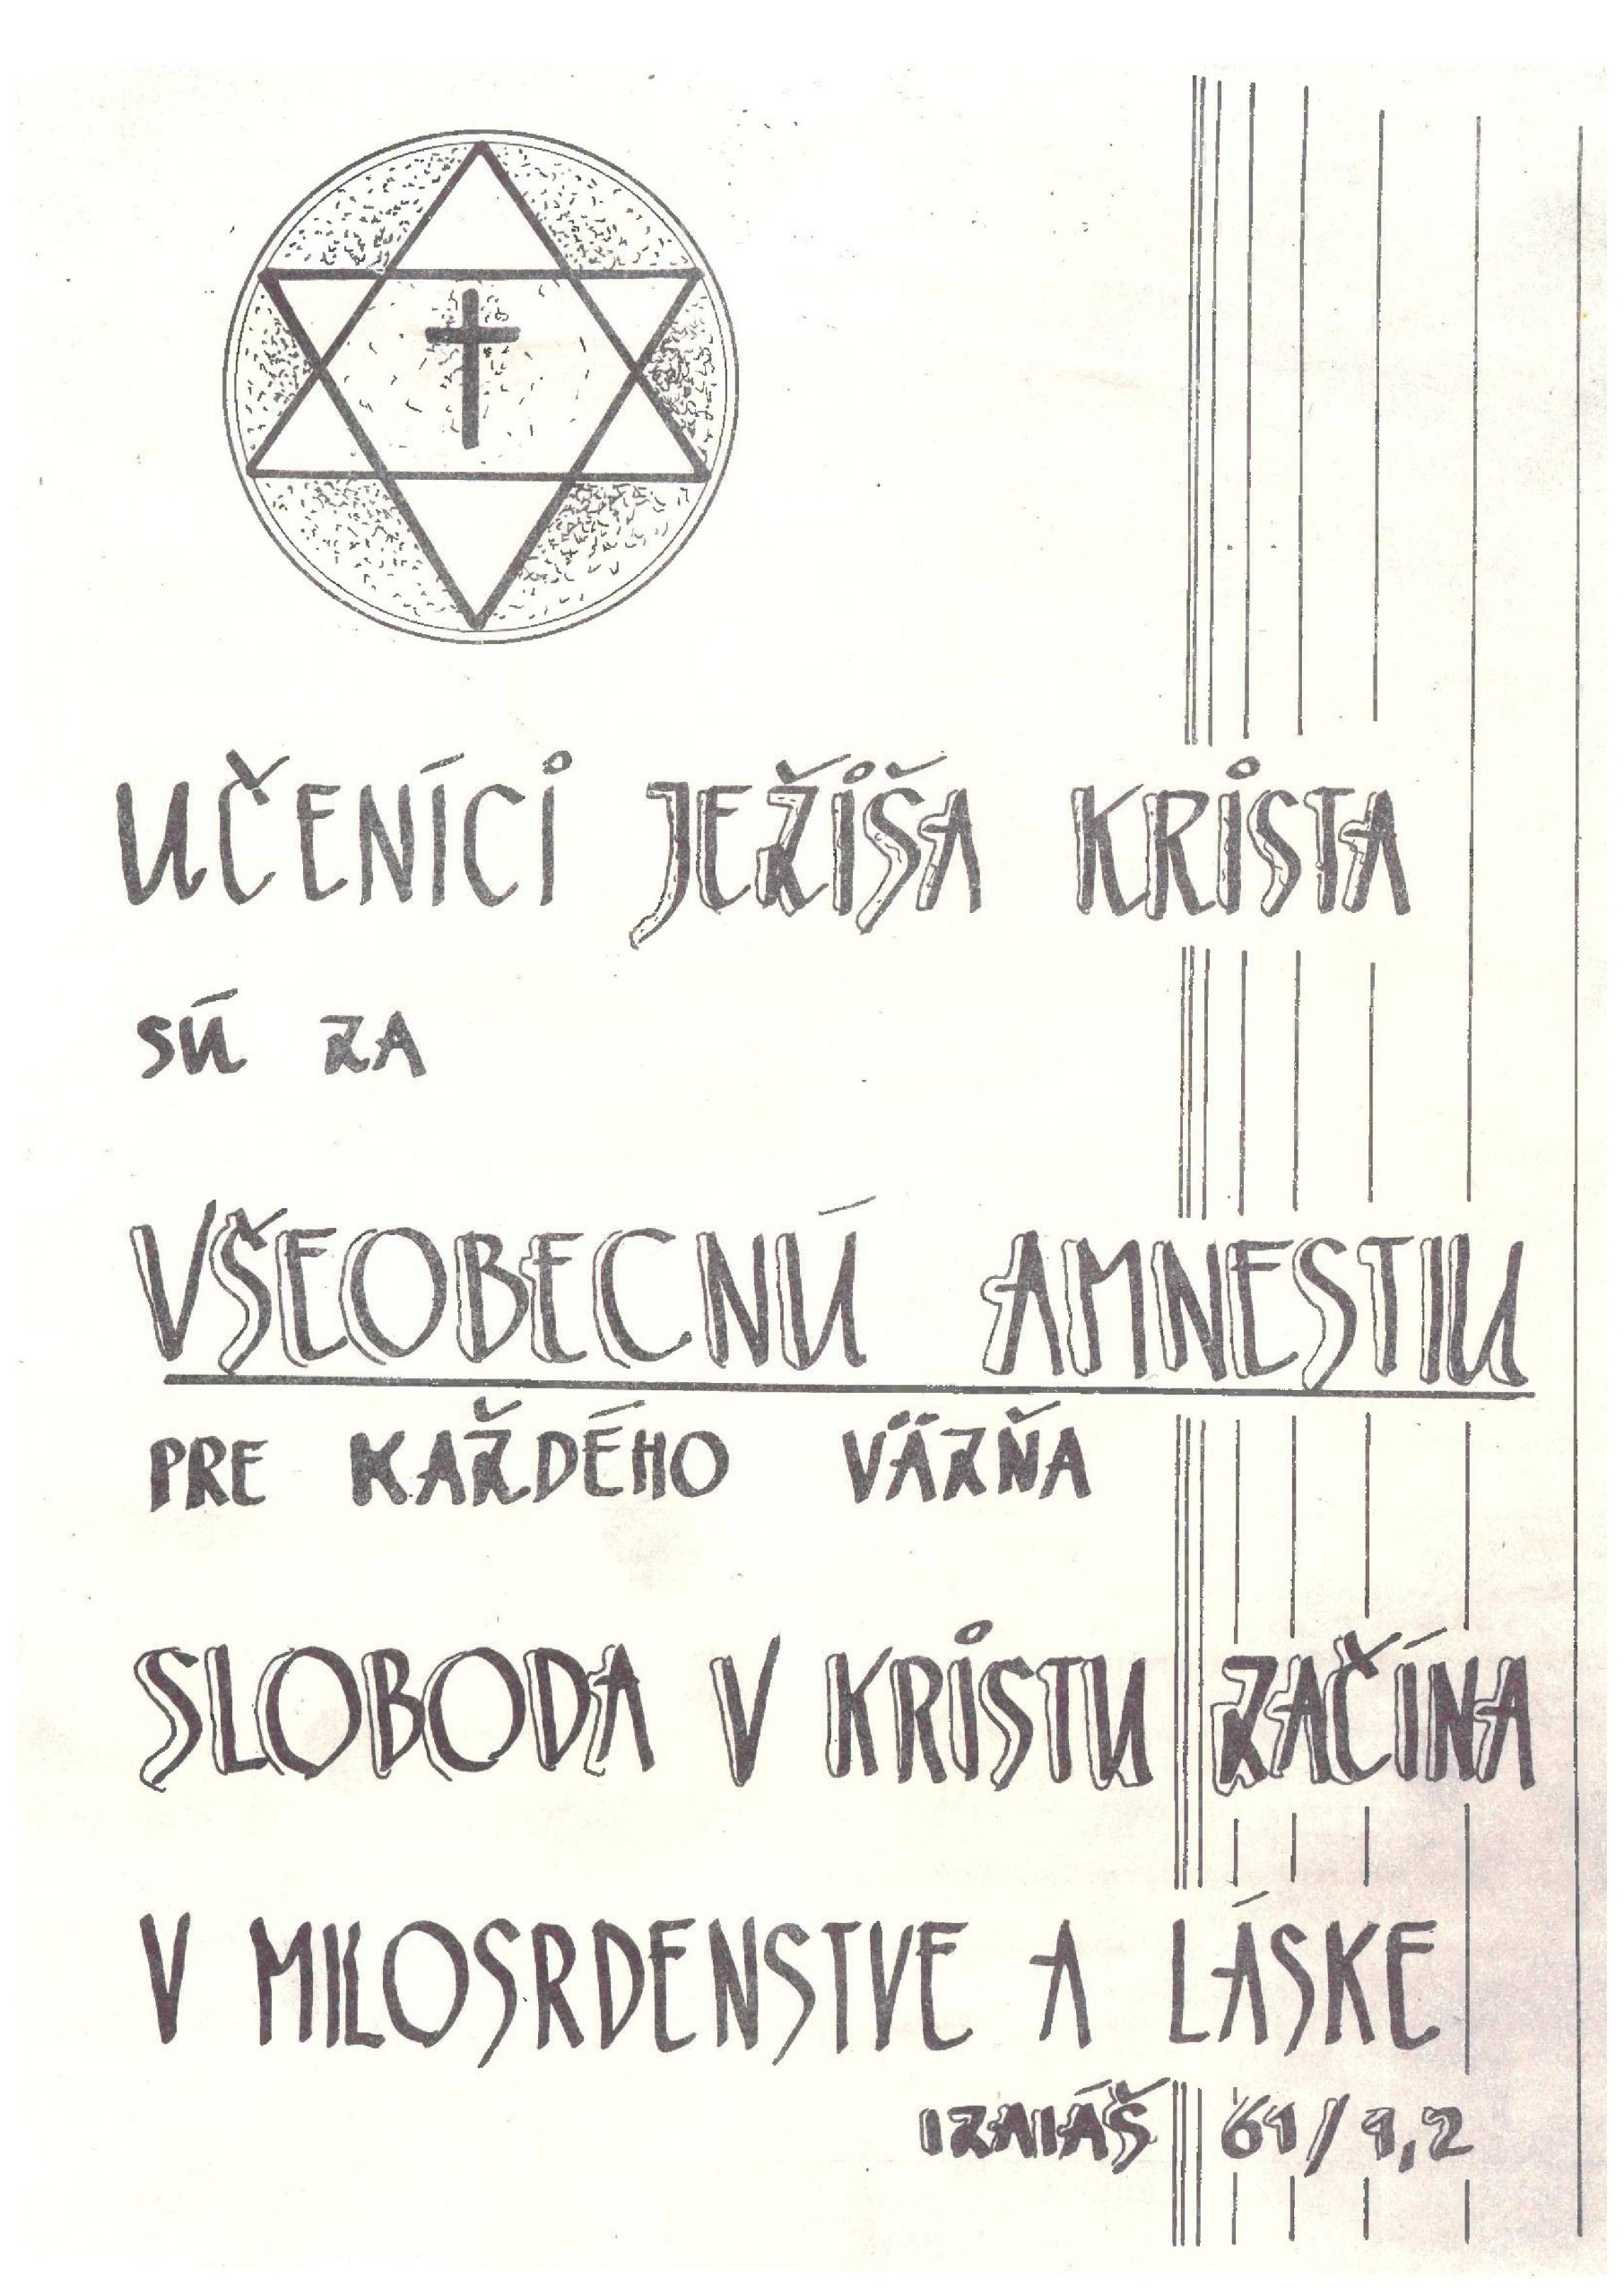 UČENÍCI JEŽIŠA KRISTA
SÚ ZA
VŠEOBECNÚ AMNESTIU
PRE KAŽDÉHO VÄZŇA
SLOBODA V KRISTU ZAČÍNA
V MILOSRDENSTVE A LÁSKE
IZAIÁŠ 61/1,2